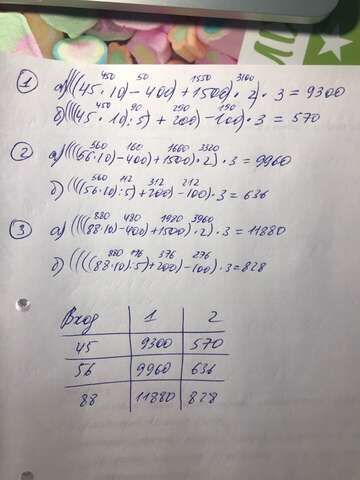 450 50 1550 3100
① а) ((((45·10)-400)+1500)·2)·3=9300
450 90 290 190
б) ((((45·10):5)+200)-100)·3=570
560 160 1660 3320
② а) ((((56·10)-400)+1500)·2)·3=9960
560 112 312 212
б) ((((56·10):5)+200)-100)·3=636
880 480 1980 3960
③ а) ((((88·10)-400)+1500)·2)·3=11880
880 176 376 276
б) ((((88·10):5)+200)-100)·3=828
Вход 1 2
45 9300 570
56 9960 636
88 11880 828